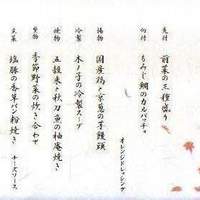 先付
前菜の三種盛り
向付
もみじ鯛のカルパッチョ
オレンジドレッシング
揚物
国産鶏と京葱の芋饅頭
冷製
木ノ子の冷製スープ
焼物
五穀米と秋刀魚の柚庵焼き
焚物
季節野菜の炊き合わせ
主菜
塩豚の香草パン粉焼き
チーズソース